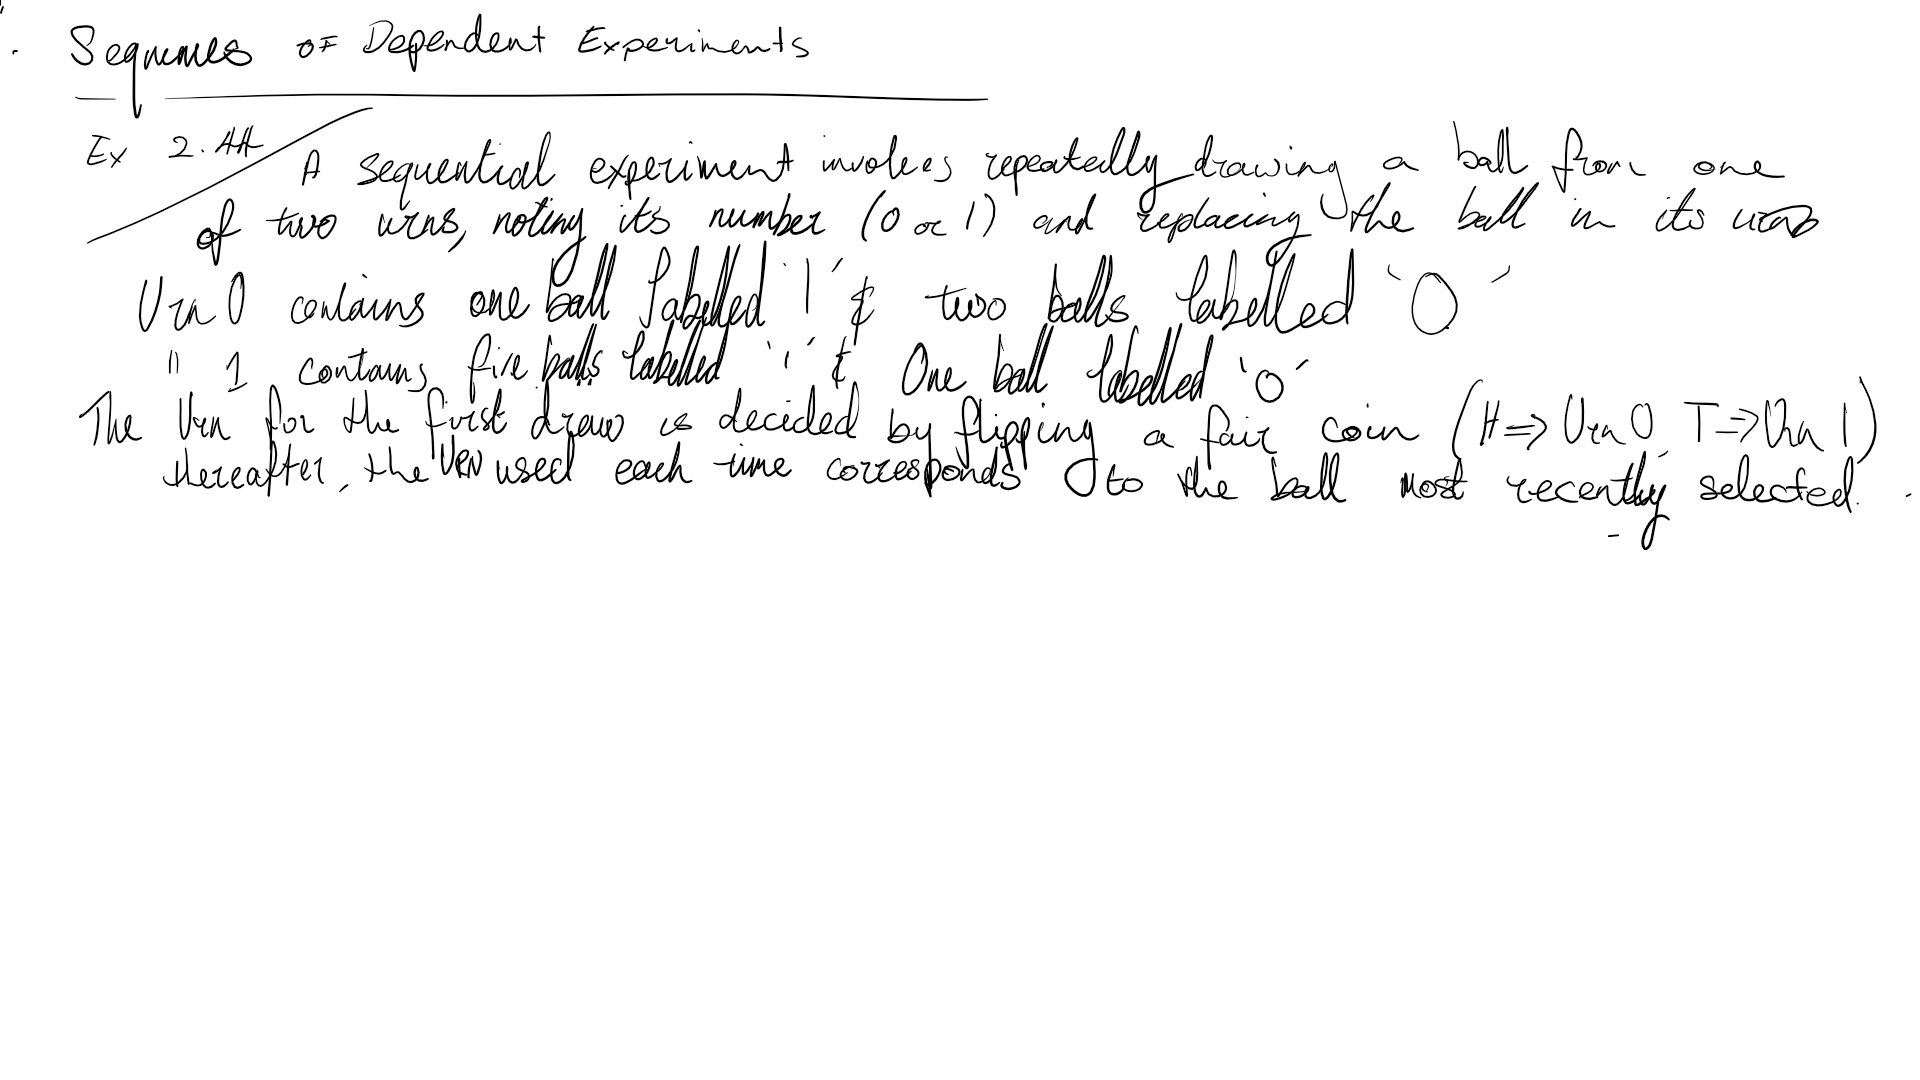 Sequences OF Dependent Experiments
Ex 2.44
A sequential experiment involves repeatedly drawing a ball from one
of two urns, noting its number (0 or 1) and replacing the ball in its urn
Urn 0 contains one ball labelled '1' & two balls labelled '0'
" 1 contains five balls labelled '1' & One ball labelled '0'
The Urn for the first draw is decided by flipping a fair coin (H => Urn 0, T => Urn 1)
thereafter, the URN used each time corresponds to the ball most recently selected.